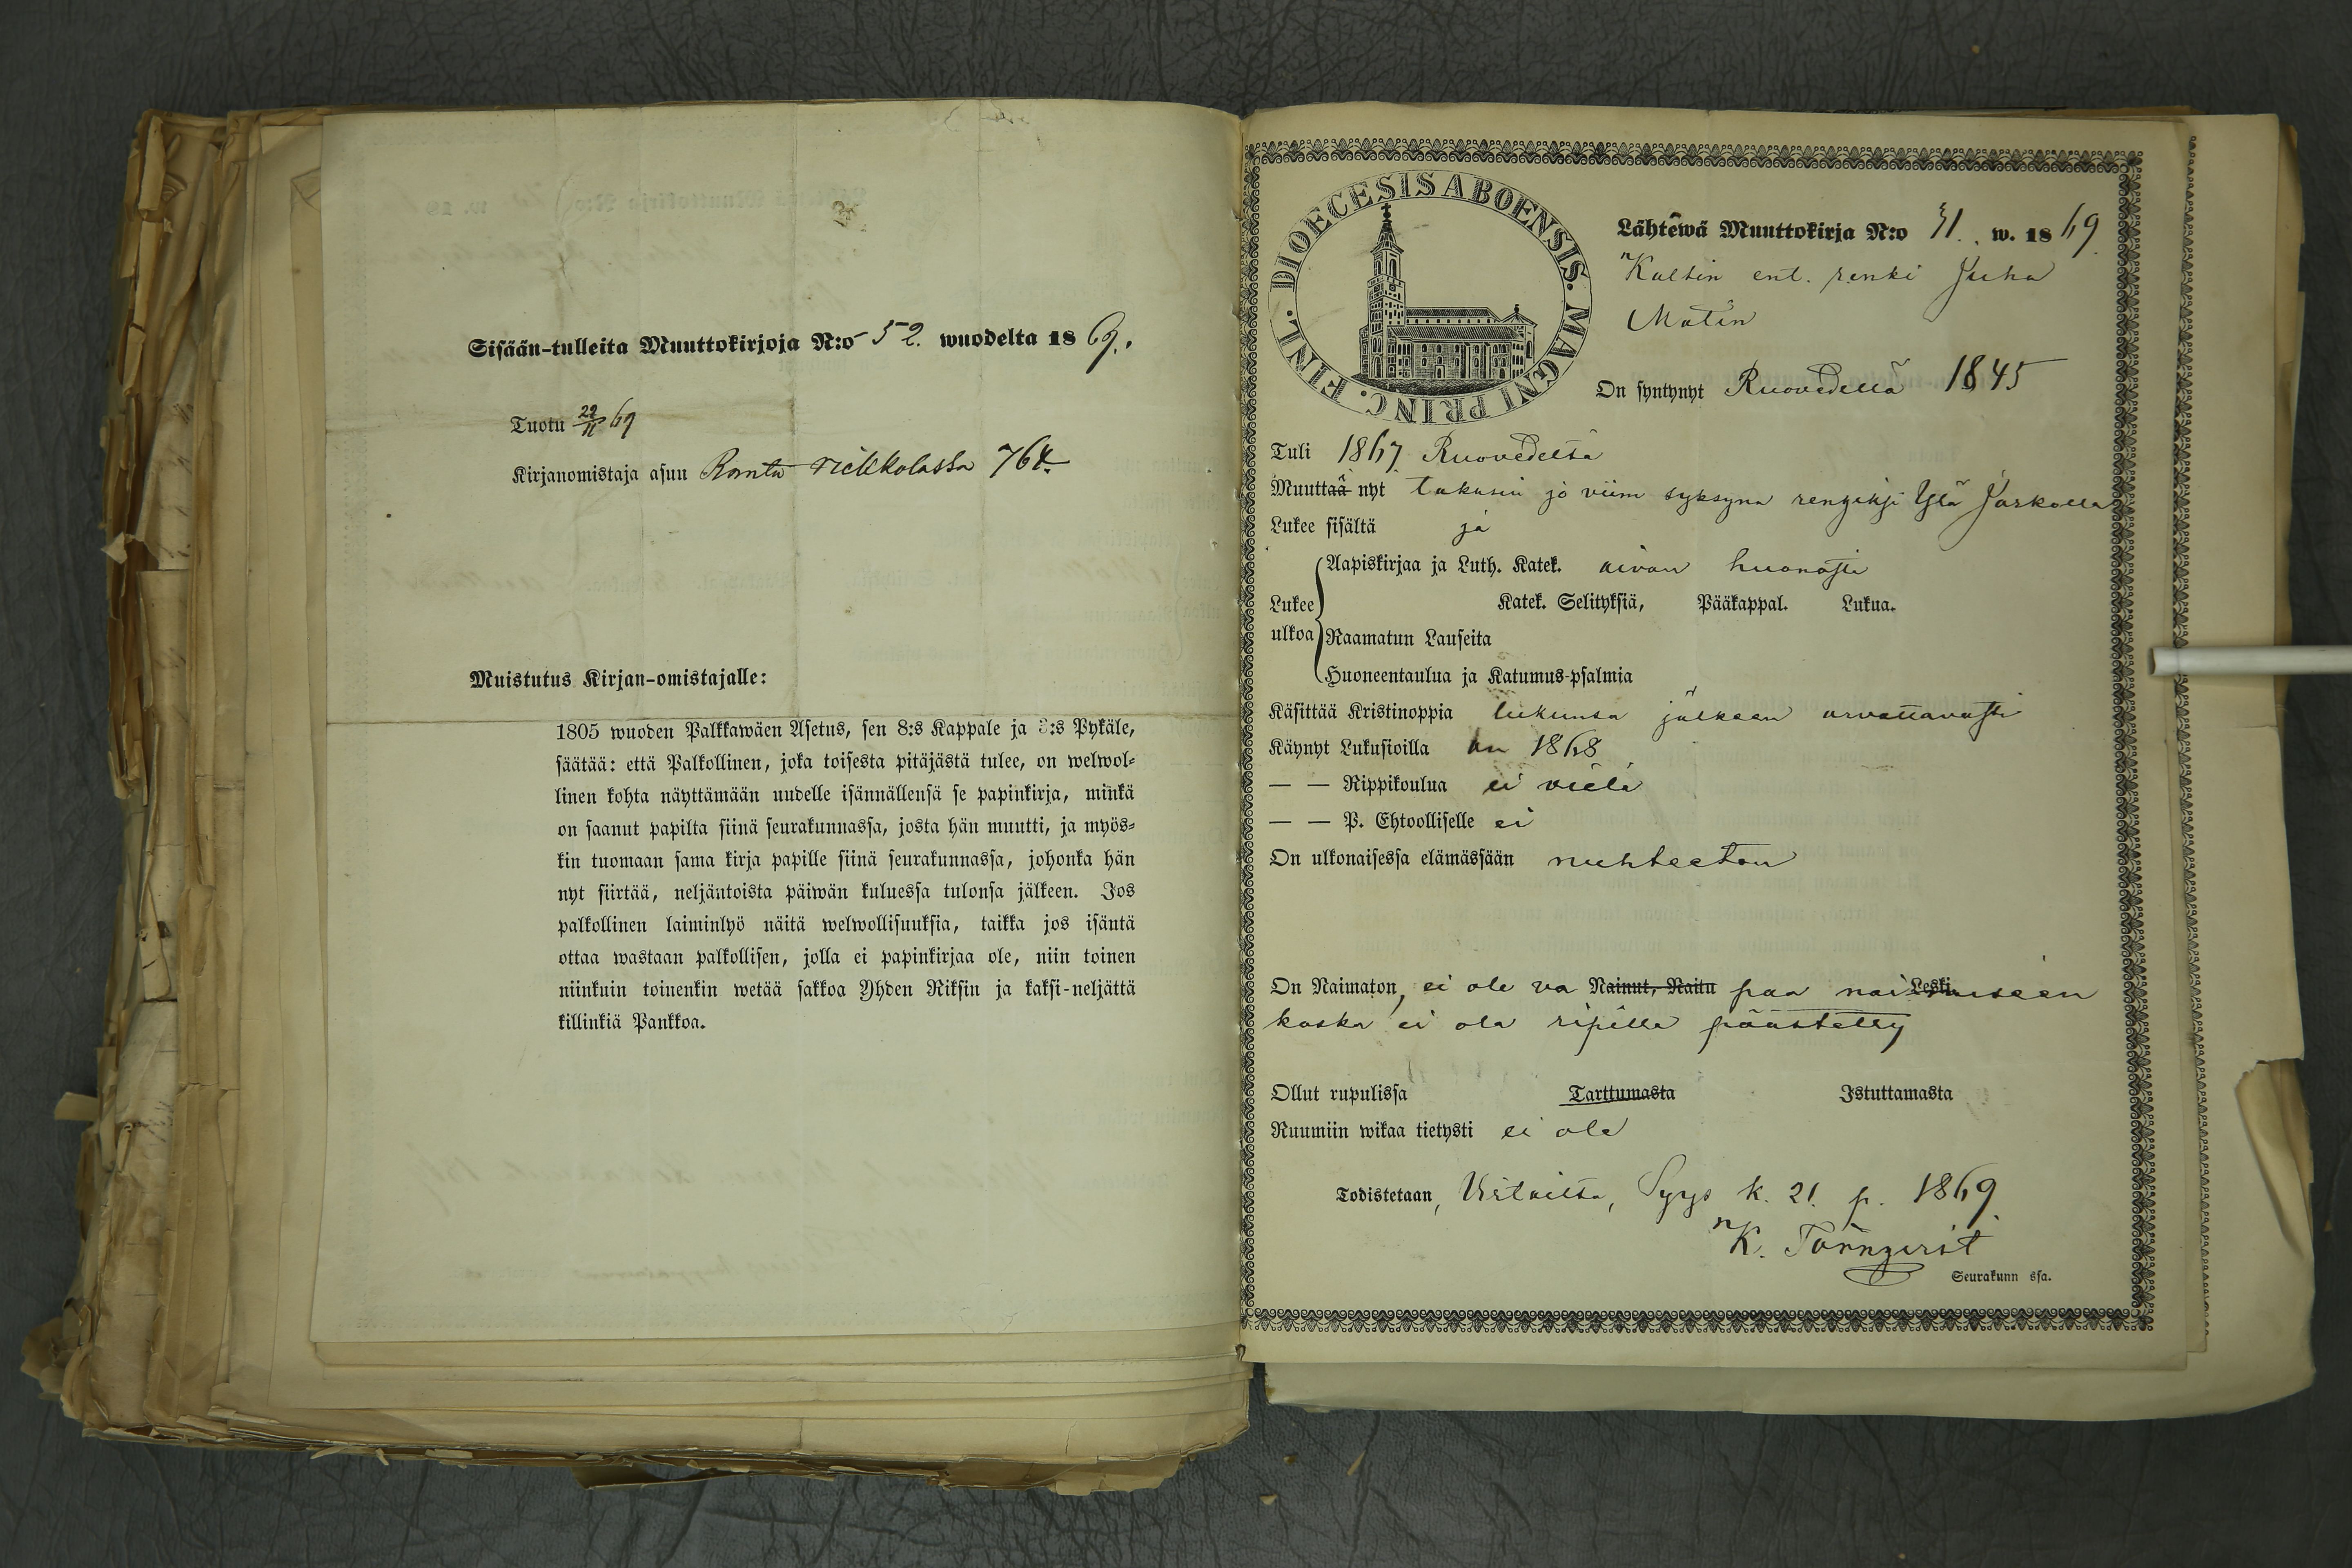 Sisään-tulleita Muuttokirjoja N:o 52. wuodelta 1869.
Tuotu 22/11 69
Kirjanomistaja asuu Ranta 764.
Muistutus Kirjan-omistajalle:
1805 wuoden Palkkawäen Asetus, sen 8:s Kappale ja 3:s Pykäle,
säätää: että Palkollinen, joka toisesta pitäjästä tulee, on welwol-
linen kohta näyttämään uudelle isännällensä se papinkirja, minkä
on saanut papilta siinä seurakunnassa, josta hän muutti, ja myös-
kin tuomaan sama kirja papille siinä seurakunnassa, johonka hän
nyt siirtää, neljäntoista päiwän kuluessa tulonsa jälkeen. Jos
palkollinen laiminlyö näitä welwollisuuksia, taikka jos isäntä
ottaa wastaan palkollisen, jolla ei papinkirjaa ole, niin toinen
niinkuin toinenkin wetää sakkoa Yhden Riksin ja kaksi-neljättä
killinkiä Pankkoa.
DIOECESIS ABOENSIS. MAGNI PRINC. FINL.
Lähtewä Muuttokirja N:o 31. w. 1869.
ent. renki Juha
Matin
On syntynyt Ruovedellä 1845
Tuli 1867 Ruovedeltä
Muuttaa nyt takasin jo viim syksynä rengiksi Ylä
Lukee sisältä
Lukee ulkoa
Aapiskirjaa ja Luth. Katek. aivan huonosti
Katek. Selityksiä, Pääkappal. Lukua.
Raamatun Lauseita
Huoneentaulua ja Katumus-psalmia
Käsittää Kristinoppia lukunsa jälkeen arvattavasti
Käynyt Lukusioilla on 1868
— — Rippikoulua ei vielä
— — P. Ehtoolliselle ei
On ulkonaisessa elämässään nuhteeton
On Naimaton, ei ole va Nainut, Naitu paa naimiseen Leski
koska ei ole ripille päästetty
Ollut rupulissa Tarttumasta Istuttamasta
Ruumiin wikaa tietysti ei ole
Todistetaan, Syys k. 21. p. 1869.
K. Törnqvist
Seurakunn ssa.